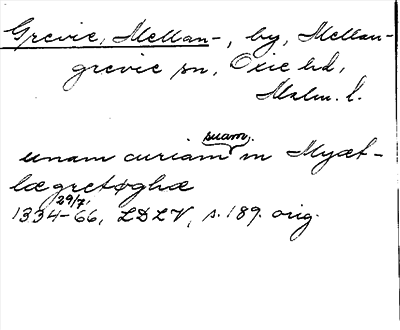 Grevie, Mellan-, by, Mellan-
grevie sn, Oxie hd,
Malm. l.
unam curiam suam in Myæt-
læ gretøghæ
1334-29/7.66, LDLV, s. 189. orig.